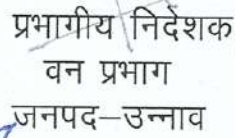 प्रभागीय निदेशक
वन प्रभाग
जनपद–उन्नाव